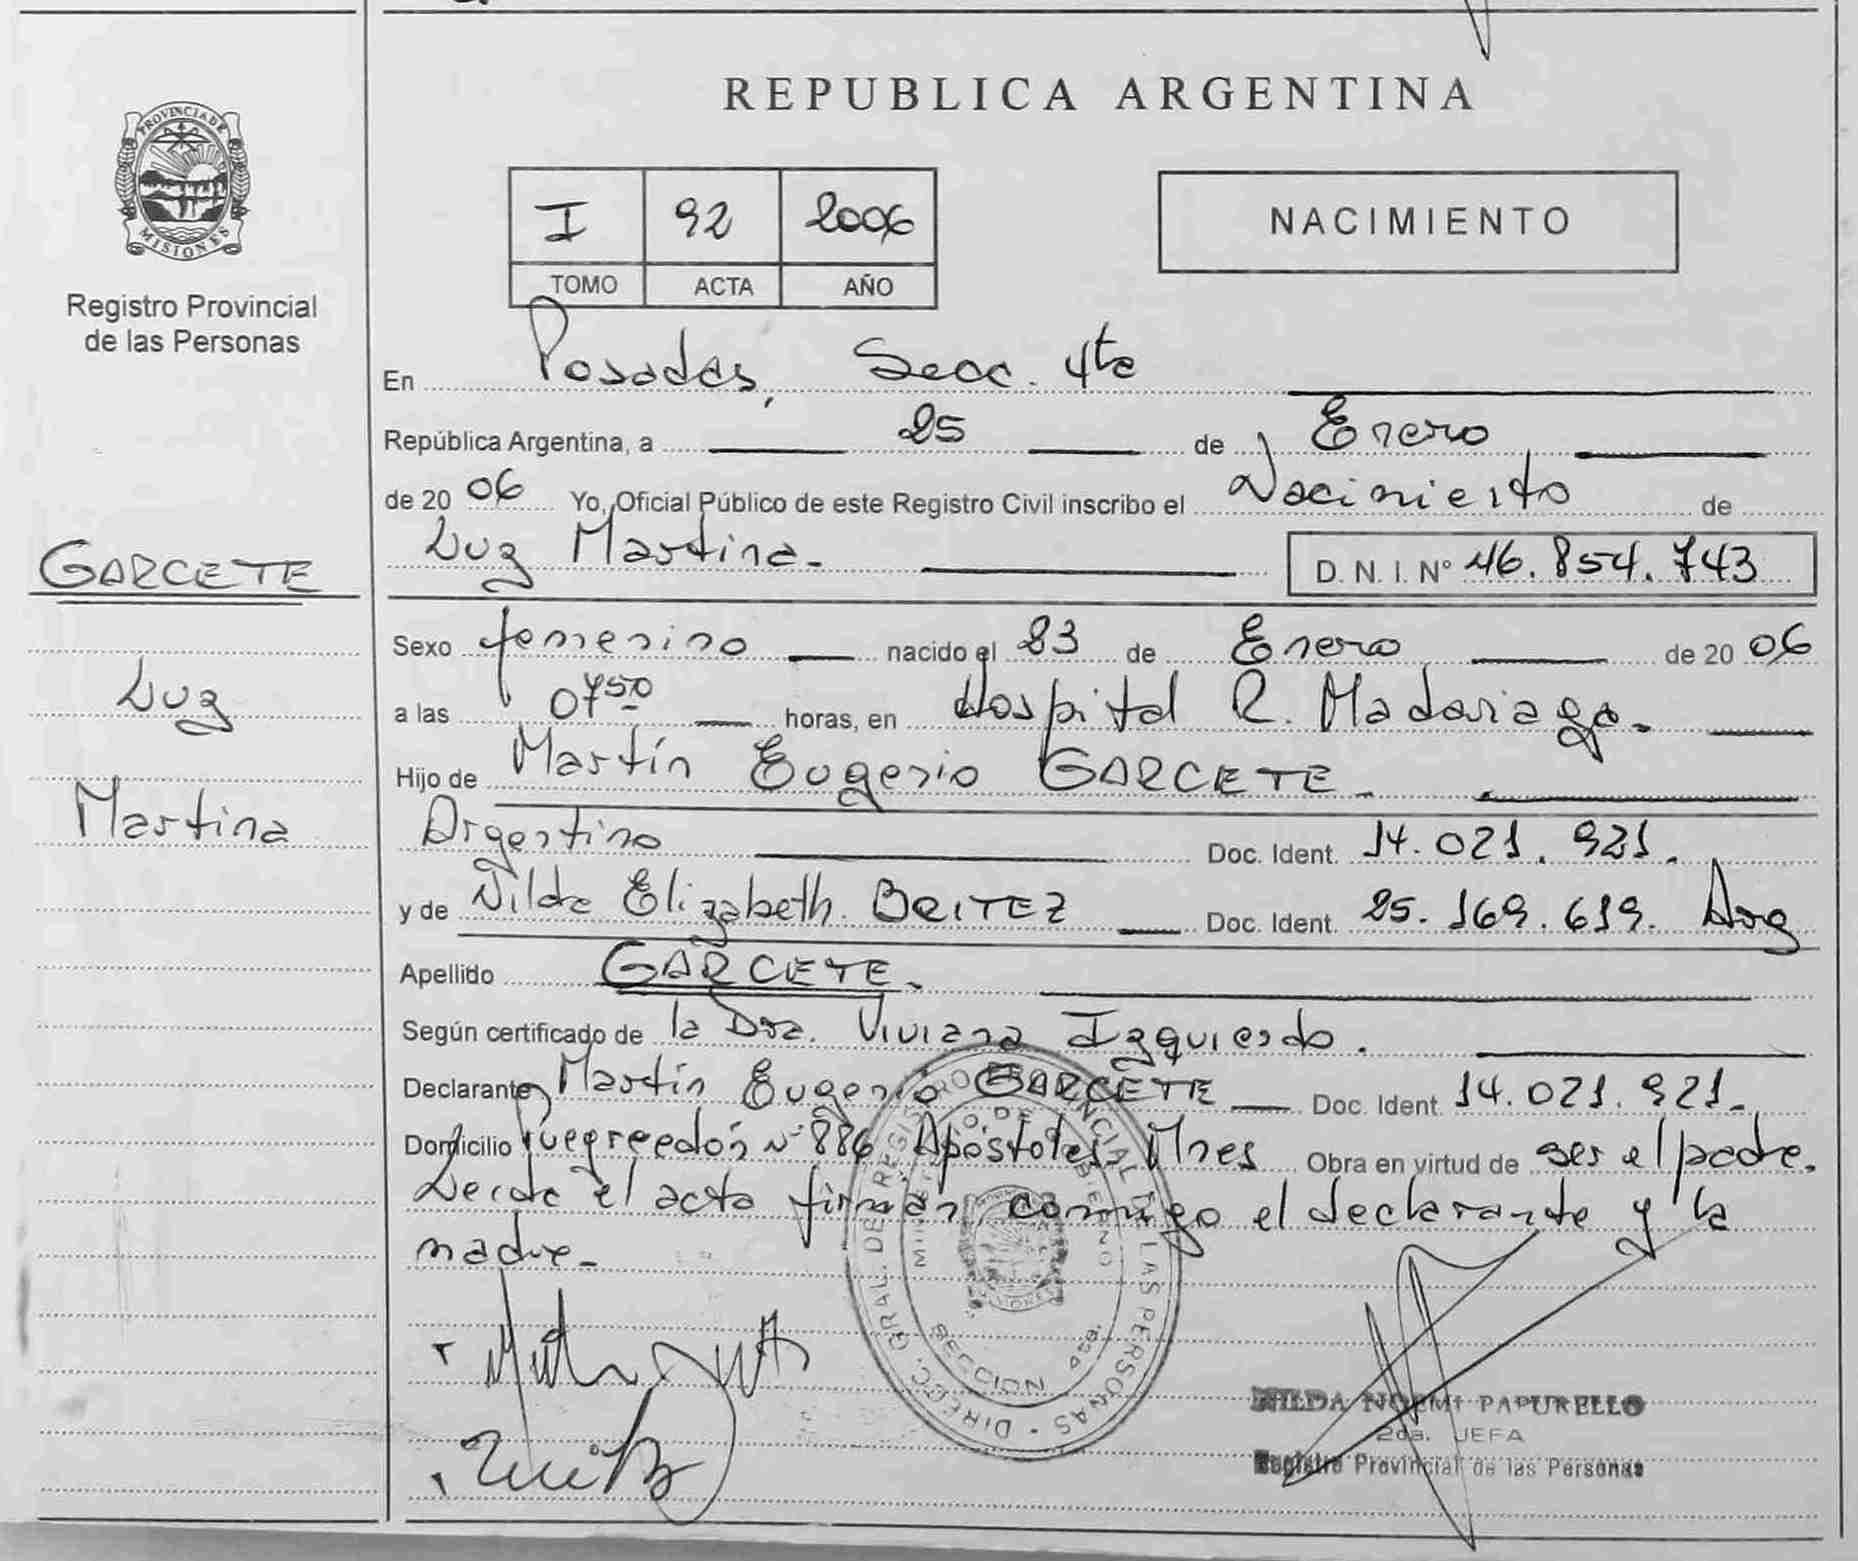 REPUBLICA ARGENTINA
PROVINCIA DE MISIONES
Registro Provincial
de las Personas
I 92 2006
TOMO ACTA AÑO
NACIMIENTO
En Posadas, Secc. 4ta
República Argentina, a 25 de Enero
de 20 06 Yo, Oficial Público de este Registro Civil inscribo el Nacimiento de
Luz Martina.
D. N. I. N° 46.854.743
GARCETE
Luz
Martina
Sexo femenino nacido el 23 de Enero de 20 06
a las 07 50 horas, en Hospital R. Madariaga.
Hijo de Martín Eugenio GARCETE.
Argentino Doc. Ident. 14.021.921.
y de Nilda Elizabeth BRITEZ Doc. Ident. 25.169.619. Arg
Apellido GARCETE.
Según certificado de la Dra. Viviana Izquierdo.
Declarante Martín Eugenio GARCETE Doc. Ident. 14.021.921.
Domicilio N° 886 Apóstoles Mnes Obra en virtud de ser el padre.
Leída el acta firman conmigo el declarante y la
madre.
DIREC. GRAL. DE REGISTRO PROVINCIAL DE LAS PERSONAS
MINISTERIO DE GOBIERNO
SECCION 4ta
NILDA NOEMI PAPURELLO
2da. JEFA
Registro Provincial de las Personas